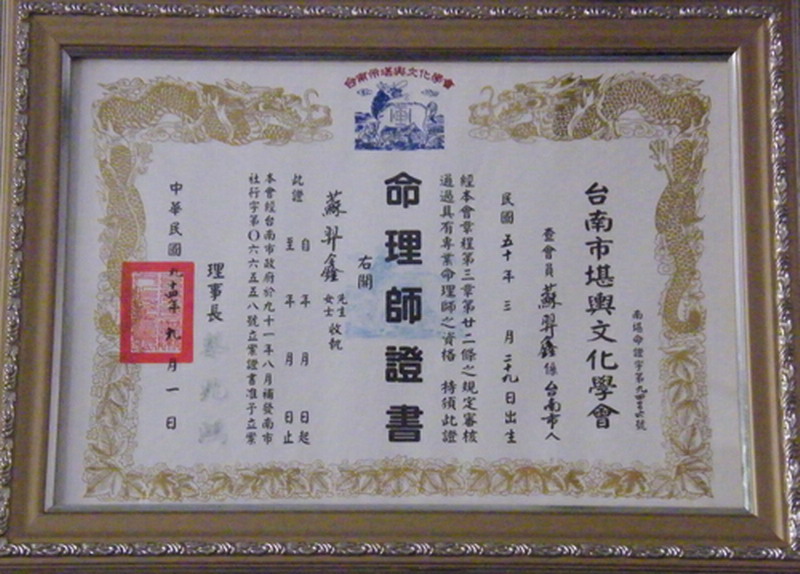 台南市堪輿文化學會
南堪命證字第九四
台南市堪輿文化學會
查會員蘇羿鑫係台南市人
民國五十年三月二十九日出生
經本會章程第三章第廿二條之規定審核
通過具有專業命理師之資格 特頒此證
命理師證書
右關
蘇羿鑫先生女士收執
此證
自 年 月 日起
至 年 月 日止
本會經台南市政府於九十一年八月補發南市
社行字第〇六六五五八號立案證書准予立案
理事長
中華民國九十四年九月一日